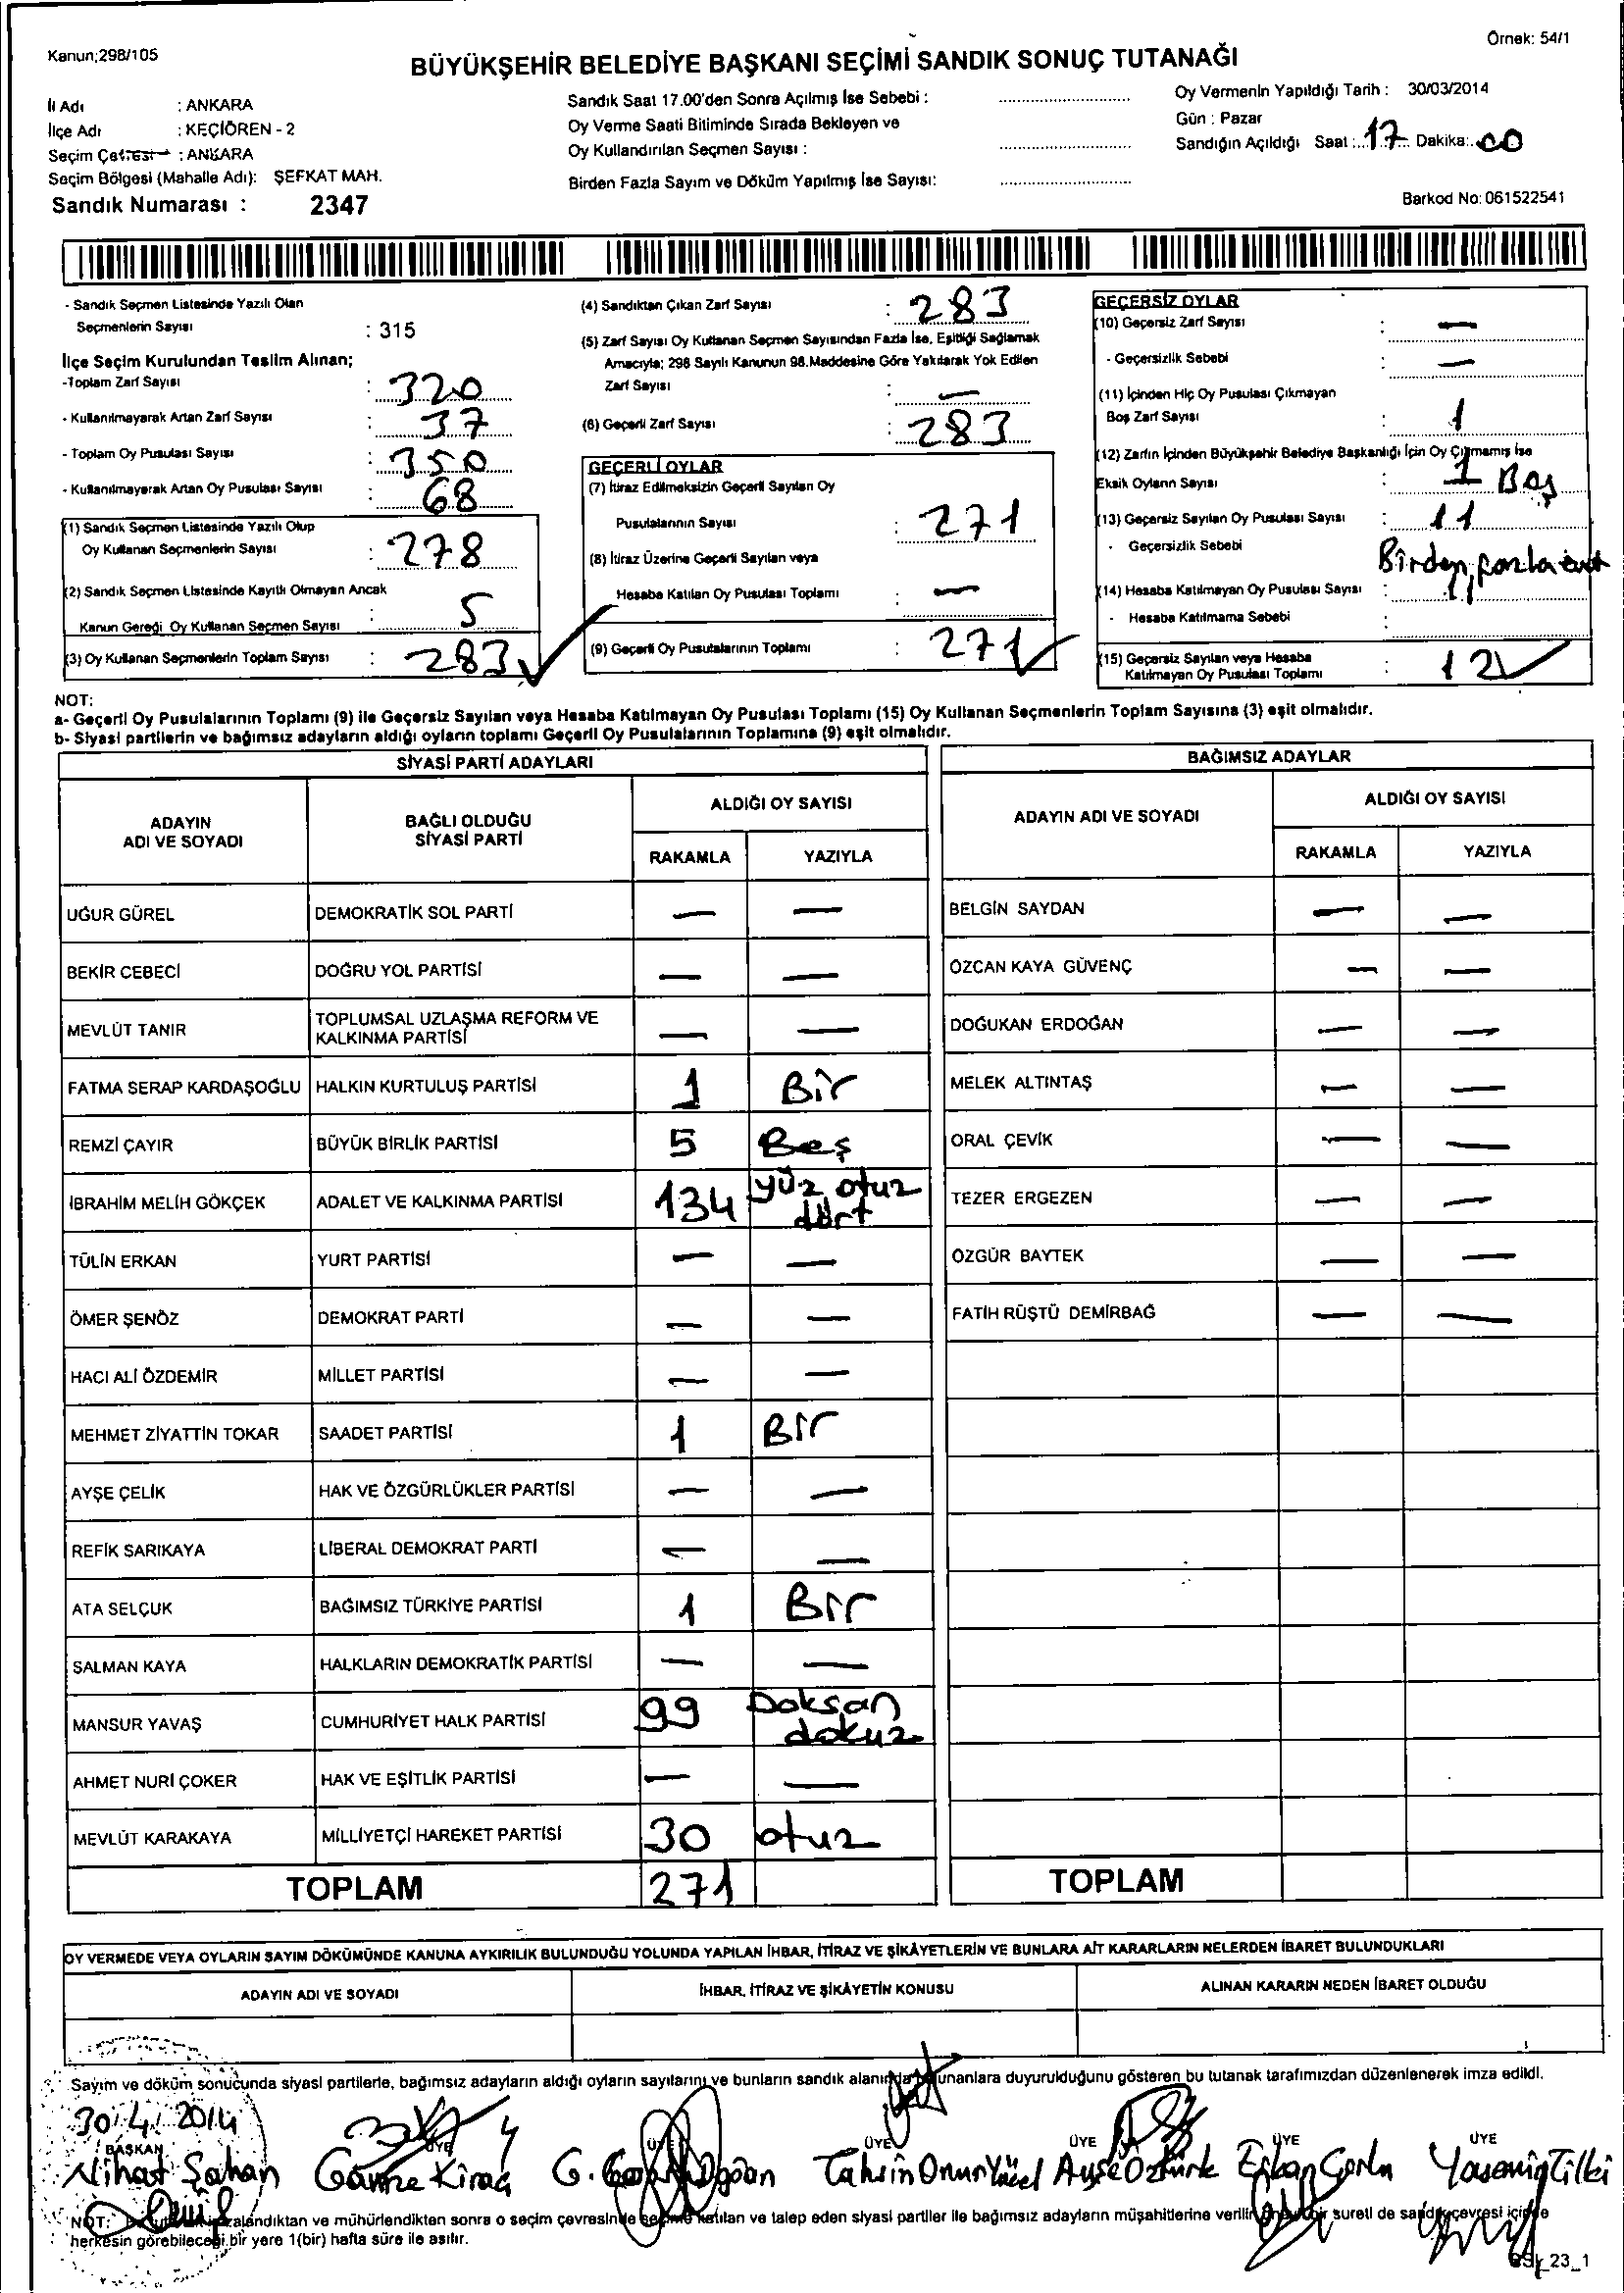 Kanun;298/105
Örnek: 54/1
BÜYÜKŞEHİR BELEDİYE BAŞKANI SEÇİMİ SANDIK SONUÇ TUTANAĞI
İl Adı : ANKARA
İlçe Adı : KEÇİÖREN - 2
Seçim Çevresi : ANKARA
Seçim Bölgesi (Mahalle Adı): ŞEFKAT MAH.
Sandık Numarası : 2347
Sandık Saat 17.00'den Sonra Açılmış İse Sebebi :
Oy Verme Saati Bitiminde Sırada Bekleyen ve
Oy Kullandırılan Seçmen Sayısı :
Birden Fazla Sayım ve Döküm Yapılmış İse Sayısı:
Oy Vermenin Yapıldığı Tarih : 30/03/2014
Gün : Pazar
Sandığın Açıldığı Saat : 17 Dakika: 00
Barkod No: 061522541
- Sandık Seçmen Listesinde Yazılı Olan
Seçmenlerin Sayısı : 315
İlçe Seçim Kurulundan Teslim Alınan;
-Toplam Zarf Sayısı : 320
- Kullanılmayarak Artan Zarf Sayısı : 37
- Toplam Oy Pusulası Sayısı : 350
- Kullanılmayarak Artan Oy Pusulası Sayısı : 68
(1) Sandık Seçmen Listesinde Yazılı Olup
Oy Kullanan Seçmenlerin Sayısı : 278
(2) Sandık Seçmen Listesinde Kayıtlı Olmayan Ancak
Kanun Gereği Oy Kullanan Seçmen Sayısı : 5
(3) Oy Kullanan Seçmenlerin Toplam Sayısı : 283
(4) Sandıktan Çıkan Zarf Sayısı : 283
(5) Zarf Sayısı Oy Kullanan Seçmen Sayısından Fazla İse, Eşitliği Sağlamak
Amacıyla; 298 Sayılı Kanunun 98.Maddesine Göre Yakılarak Yok Edilen
Zarf Sayısı : —
(6) Geçerli Zarf Sayısı : 283
GEÇERLİ OYLAR
(7) İtiraz Edilmeksizin Geçerli Sayılan Oy
Pusulalarının Sayısı : 271
(8) İtiraz Üzerine Geçerli Sayılan veya
Hesaba Katılan Oy Pusulası Toplamı : —
(9) Geçerli Oy Pusulalarının Toplamı : 271
GEÇERSİZ OYLAR
(10) Geçersiz Zarf Sayısı : —
- Geçersizlik Sebebi : —
(11) İçinden Hiç Oy Pusulası Çıkmayan
Boş Zarf Sayısı : 1
(12) Zarfın İçinden Büyükşehir Belediye Başkanlığı İçin Oy Çıkmamış ise
Eksik Oyların Sayısı : 1 Boş
(13) Geçersiz Sayılan Oy Pusulası Sayısı : 11
- Geçersizlik Sebebi Birden fazla
(14) Hesaba Katılmayan Oy Pusulası Sayısı :
- Hesaba Katılmama Sebebi :
(15) Geçersiz Sayılan veya Hesaba
Katılmayan Oy Pusulası Toplamı : 12
NOT:
a- Geçerli Oy Pusulalarının Toplamı (9) ile Geçersiz Sayılan veya Hesaba Katılmayan Oy Pusulası Toplamı (15) Oy Kullanan Seçmenlerin Toplam Sayısına (3) eşit olmalıdır.
b- Siyasi partilerin ve bağımsız adayların aldığı oyların toplamı Geçerli Oy Pusulalarının Toplamına (9) eşit olmalıdır.
SİYASİ PARTİ ADAYLARI
ADAYIN ADI VE SOYADI BAĞLI OLDUĞU SİYASİ PARTİ ALDIĞI OY SAYISI
RAKAMLA YAZIYLA
UĞUR GÜREL DEMOKRATİK SOL PARTİ — —
BEKİR CEBECİ DOĞRU YOL PARTİSİ — —
MEVLÜT TANIR TOPLUMSAL UZLAŞMA REFORM VE KALKINMA PARTİSİ — —
FATMA SERAP KARDAŞOĞLU HALKIN KURTULUŞ PARTİSİ 1 Bir
REMZİ ÇAYIR BÜYÜK BİRLİK PARTİSİ 5 Beş
İBRAHİM MELİH GÖKÇEK ADALET VE KALKINMA PARTİSİ 134 yüz otuz dört
TÜLİN ERKAN YURT PARTİSİ — —
ÖMER ŞENÖZ DEMOKRAT PARTİ — —
HACI ALİ ÖZDEMİR MİLLET PARTİSİ — —
MEHMET ZİYATTİN TOKAR SAADET PARTİSİ 1 Bir
AYŞE ÇELİK HAK VE ÖZGÜRLÜKLER PARTİSİ — —
REFİK SARIKAYA LİBERAL DEMOKRAT PARTİ — —
ATA SELÇUK BAĞIMSIZ TÜRKİYE PARTİSİ 1 Bir
SALMAN KAYA HALKLARIN DEMOKRATİK PARTİSİ — —
MANSUR YAVAŞ CUMHURİYET HALK PARTİSİ 99 Doksan dokuz
AHMET NURİ ÇOKER HAK VE EŞİTLİK PARTİSİ — —
MEVLÜT KARAKAYA MİLLİYETÇİ HAREKET PARTİSİ 30 otuz
TOPLAM 271
BAĞIMSIZ ADAYLAR
ADAYIN ADI VE SOYADI ALDIĞI OY SAYISI
RAKAMLA YAZIYLA
BELGİN SAYDAN — —
ÖZCAN KAYA GÜVENÇ — —
DOĞUKAN ERDOĞAN — —
MELEK ALTINTAŞ — —
ORAL ÇEVİK — —
TEZER ERGEZEN — —
ÖZGÜR BAYTEK — —
FATİH RÜŞTÜ DEMİRBAĞ — —
TOPLAM
OY VERMEDE VEYA OYLARIN SAYIM DÖKÜMÜNDE KANUNA AYKIRILIK BULUNDUĞU YOLUNDA YAPILAN İHBAR, İTİRAZ VE ŞİKÂYETLERİN VE BUNLARA AİT KARARLARIN NELERDEN İBARET BULUNDUKLARI
ADAYIN ADI VE SOYADI İHBAR, İTİRAZ VE ŞİKÂYETİN KONUSU ALINAN KARARIN NEDEN İBARET OLDUĞU
Sayım ve döküm sonucunda siyasi partilerle, bağımsız adayların aldığı oyların sayılarını ve bunların sandık alanında bulunanlara duyurulduğunu gösteren bu tutanak tarafımızdan düzenlenerek imza edildi.
30/4/2014
BAŞKAN ÜYE ÜYE ÜYE ÜYE ÜYE ÜYE
Nihat Şahan Gamze Kıraç G. Doğan Tahsin Onur Yücel Ayşe Öztürk Yasemin Tilki
NOT: kalandıktan ve mühürlendikten sonra o seçim çevresinde seçime katılan ve talep eden siyasi partiler ile bağımsız adayların müşahitlerine verilir, bir sureti de sandık çevresi içinde
herkesin görebileceği bir yere 1(bir) hafta süre ile asılır.
23_1